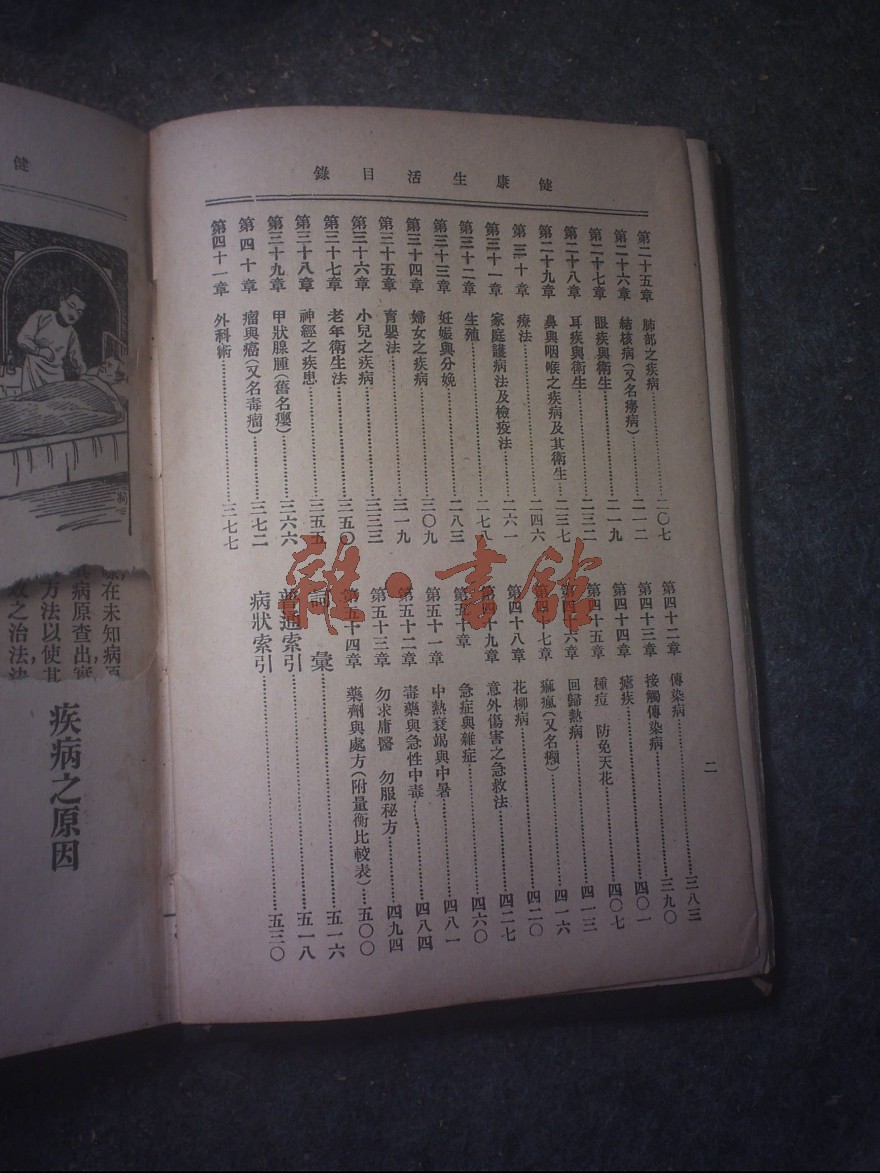 健康生活目錄
第二十五章 肺部之疾病 二〇七
第二十六章 結核病(又名癆病) 二一二
第二十七章 眼疾與衛生 二一九
第二十八章 耳疾與衛生 二三二
第二十九章 鼻與咽喉之疾病及其衛生 二三七
第三十章 療法 二四六
第三十一章 家庭護病法及檢疫法 二六一
第三十二章 生殖 二七八
第三十三章 妊娠與分娩 二八三
第三十四章 婦女之疾病 三〇九
第三十五章 育嬰法 三一九
第三十六章 小兒之疾病 三三三
第三十七章 老年衛生法 三五〇
第三十八章 神經之疾患 三五五
第三十九章 甲狀腺腫(舊名癭) 三六六
第四十章 瘤與癌(又名毒瘤) 三七二
第四十一章 外科術 三七七
第四十二章 傳染病 三八三
第四十三章 接觸傳染病 三九〇
第四十四章 瘧疾 四〇一
第四十五章 種痘 防免天花 四〇七
第四十六章 回歸熱病 四一三
第四十七章 痲瘋(又名癩) 四一六
第四十八章 花柳病 四二〇
第四十九章 意外傷害之急救法 四二七
第五十章 急症與雜症 四六〇
第五十一章 中熱衰竭與中暑 四八一
第五十二章 毒藥與急性中毒 四八四
第五十三章 勿求庸醫 勿服秘方 四九四
第五十四章 藥劑與處方(附量衡比較表) 五〇〇
詞彙 五一六
普通索引 五一八
病狀索引 五三〇
二
雜·書館
健
疾病之原因
在未知病
病原查出
方法以使其
之治法